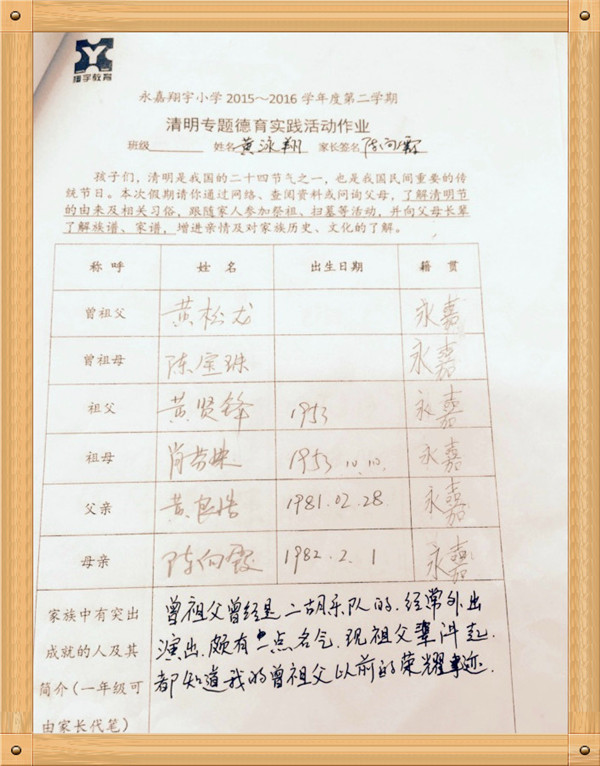 翔宇教育
永嘉翔宇小学 2015～2016 学年度第二学期
清明专题德育实践活动作业
班级 姓名 黄泳翔 家长签名 陈向霞
孩子们，清明是我国的二十四节气之一，也是我国民间重要的传
统节日。本次假期请你通过网络、查阅资料或问询父母，了解清明节
的由来及相关习俗，跟随家人参加祭祖、扫墓等活动，并向父母长辈
了解族谱、家谱，增进亲情及对家族历史、文化的了解。
称 呼 姓 名 出生日期 籍 贯
曾祖父 黄松龙 永嘉
曾祖母 陈宝珠 永嘉
祖父 黄贤锋 1953 永嘉
祖母 肖 妹 1953 10.10. 永嘉
父亲 黄良浩 1981.02.28 永嘉
母亲 陈向霞 1982.2.1 永嘉
家族中有突出
成就的人及其
简介（一年级可
由家长代笔）
曾祖父曾经是二胡乐队的.经常外出
演出.颇有一点名气.现祖父辈 起.
都知道我的曾祖父以前的荣耀事迹.